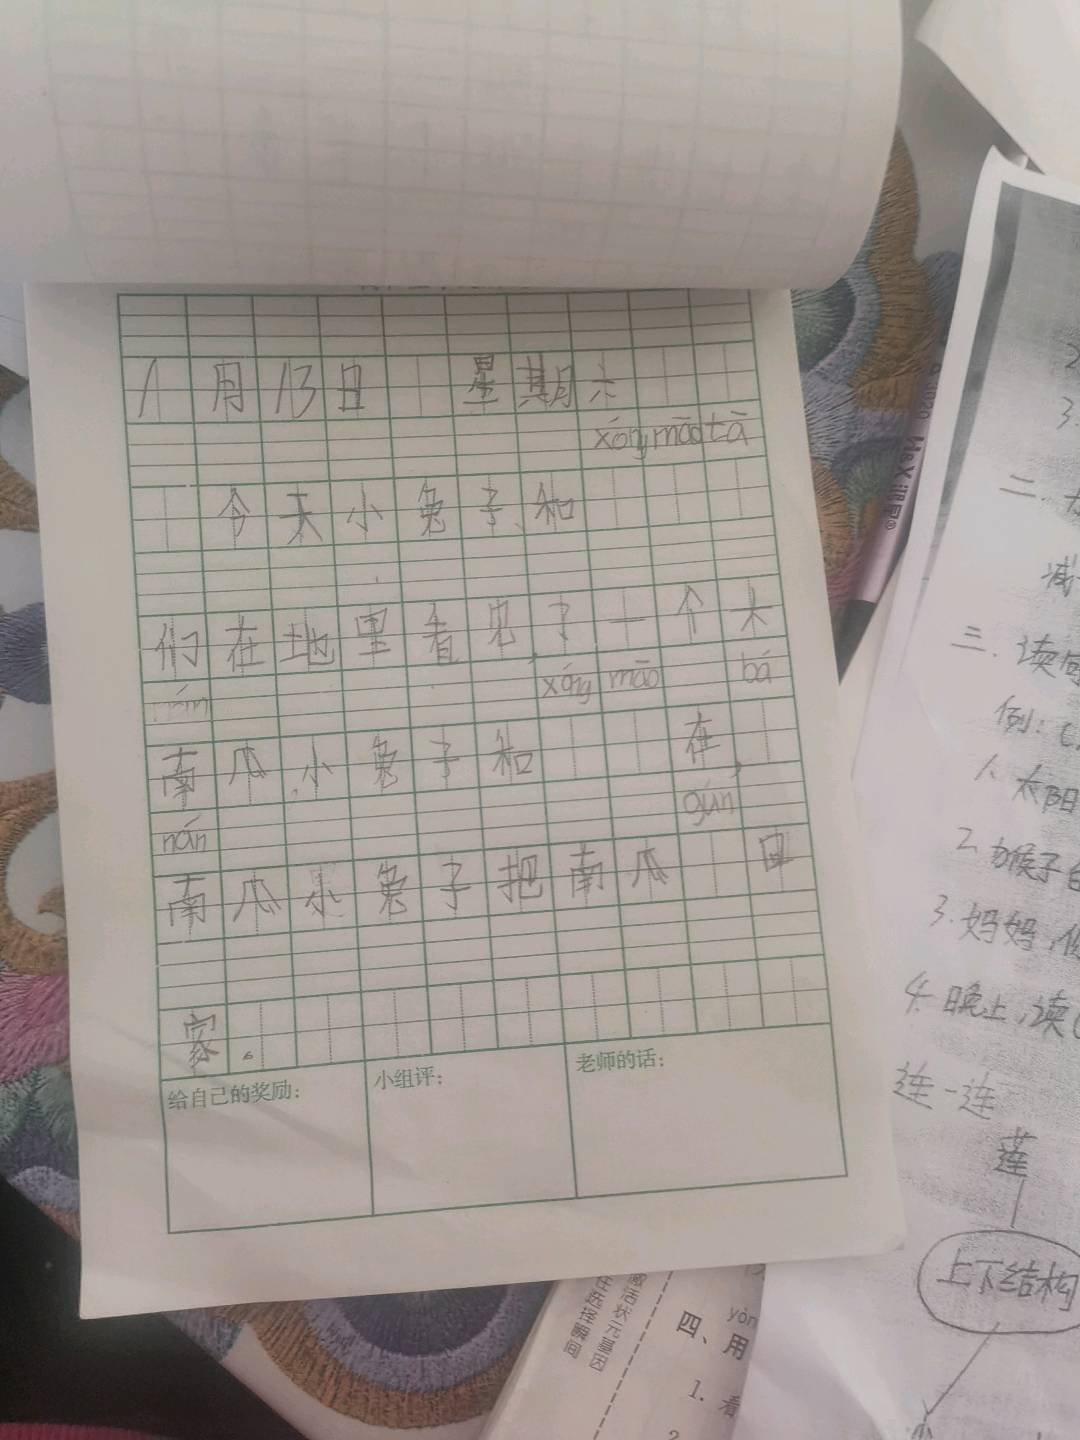 1月13日 星期六
xóng māo tā
今天小兔子、和
们在地里看见了一个大
nán xóng māo bá
南瓜,小兔子和 在,
nán gún
南瓜小兔子把南瓜 回
家。
给自己的奖励:
小组评:
老师的话:
三.读句
例:
1.太阳
2.猴子
3.妈妈,
4.晚上,读(
连一连
莲
上下结构
yòn
四、用
1. 看
2